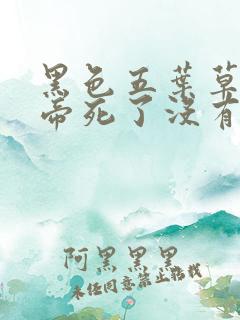 黑色五叶草
帝死了没有
阿黑黑黑
未经同意禁止转载